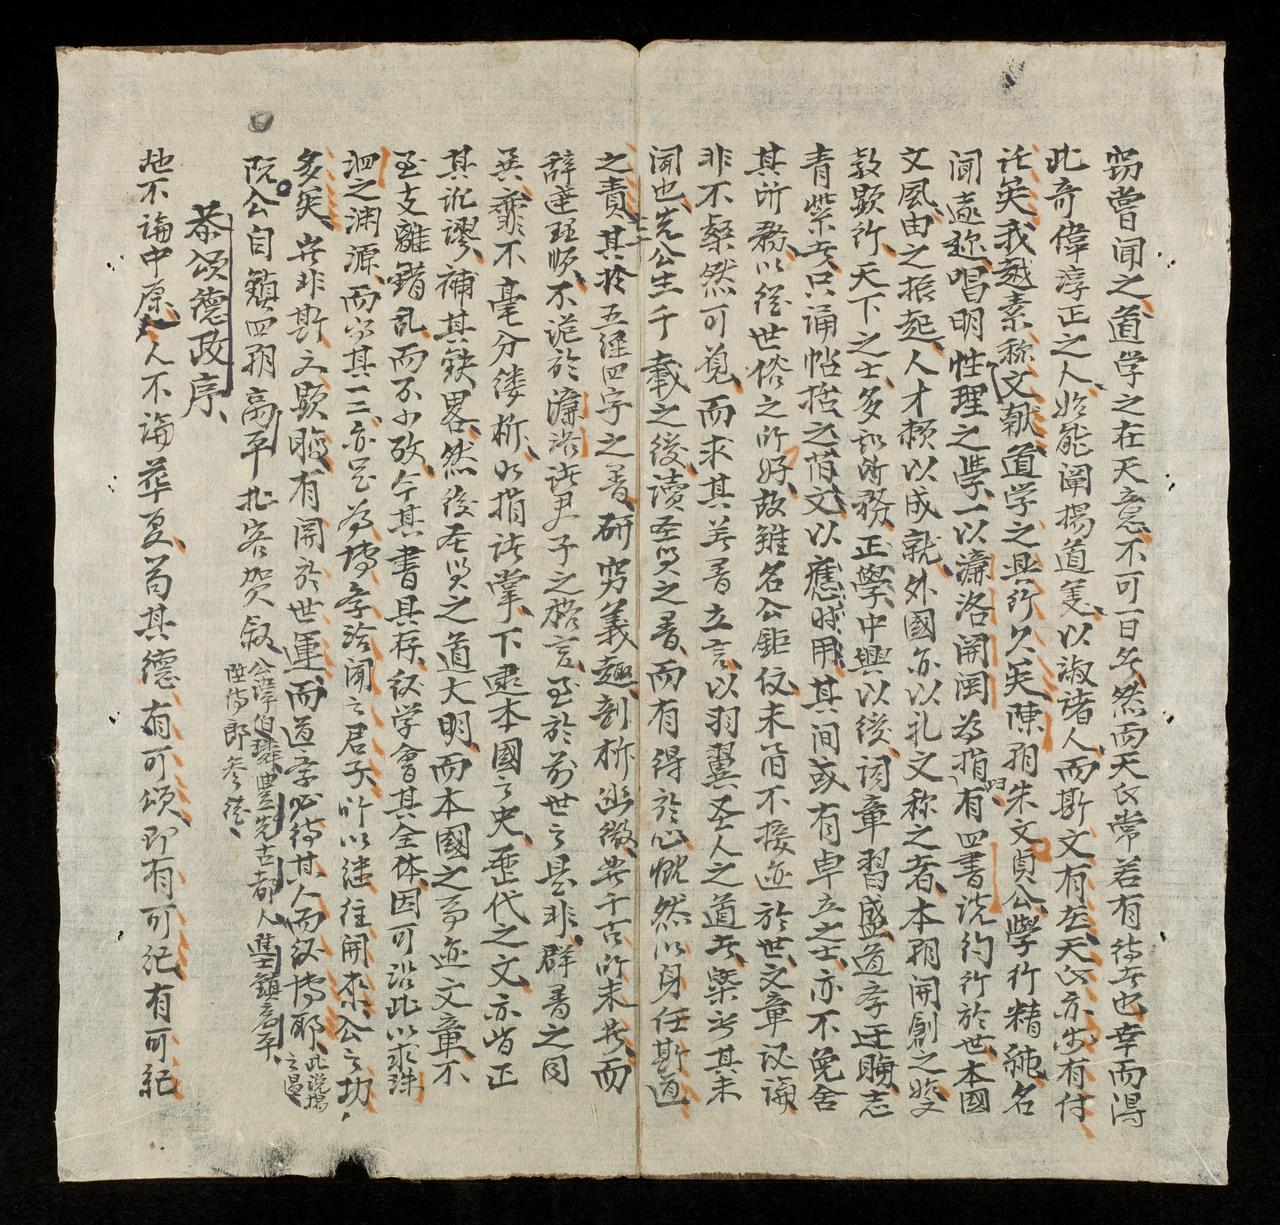 竊嘗聞之道学之在天意不可一日無然而天心常若有待者也幸而得
此奇偉淳正之人始能闡揚道美以淑諸人而斯文有在天心亦必有付
託矣我越素称文献道学之興行久矣陳朝朱文貞公學行精純名
聞遠邇唱明性理之學一以濂洛関閩為指歸有四書説約行於世本國
文風由之振起人才頼以成就外國亦以礼文称之者本朝開創之始文
教顕行天下之士多所務正學中興以後詞章習盛道学迂晦志
青紫者只誦帖括之蔭文以應時用其间或有卓立之士亦不免舍
其所務以從世俗之所好故雖名公鉅仅未甞不接迹於世文章議論
非不粲然可覓而求其著書立言以羽翼圣人之道者槩乎其未
聞也先公生千載之後讀圣贤之書而有得於心慨然以身任斯道
之責其於五経四字之書研窮義趣剖析幽微發千古所未發而
辞達理順不詭於濂洛諸君子之格言至於前世之是非群書之同
異靡不毫分縷析如指諸掌下逮本國之史歴代之文亦皆正
其訛謬補其缺畧然後圣贤之道大明而本國之事迹文章不
至支離錯乱而不少攷今其書具存後学會其全体因可沿此以求洙
泗之渊源而宗其一二亦足為博学洽聞之君子所以継往開來公之功
多矣豈非斯文顕晦有関於世運而道学必待其人而後傳耶此説揚之謁
阮公自鎮四朔高平北客賀叙公諱伯璘豊先古都人進士鎮高平陞侍郎参從
恭頌德政序
地不論中原人不論華夏苟其德有可頌即有可紀有可紀